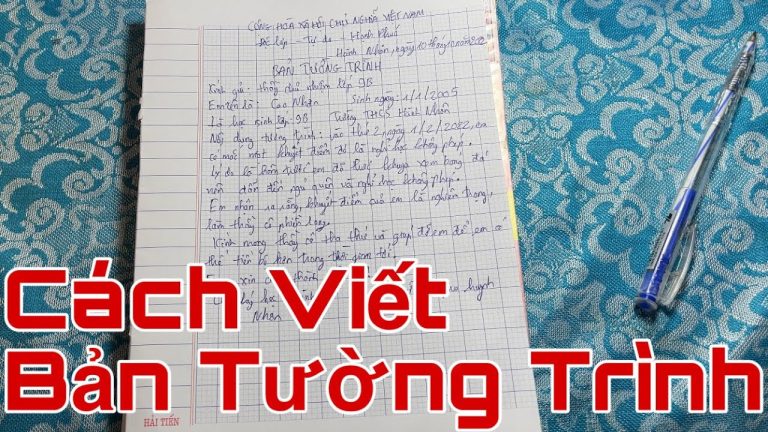 CỘNG HÒA XÃ HỘI CHỦ NGHĨA VIỆT NAM
Độc lập - Tự do - Hạnh Phúc
Hành Nhân, ngày 10 tháng 10 năm 202
BẢN TƯỜNG TRÌNH
Kính gửi: thầy chủ nhiệm lớp 9B
Em tên là: Cao Nhân Sinh ngày: 1/1/2005
Là học sinh lớp: 9B Trường THCS Hành Nhân
Nội dung tường trình: vào thứ 2, ngày 1/2/2022, em
có mắc một khuyết điểm đó là nghỉ học không phép.
Lý do là hôm trước em đã thức khuya xem bóng đá
nên dẫn đến ngủ quên và nghỉ học không phép.
Em nhận ra rằng, khuyết điểm của em là nghiêm trọng,
làm thầy cô phiền lòng.
Kính mong thầy cô tha thứ và giúp đỡ em để em có
thể tiến bộ hơn trong thời gian tới.
Em xin
huynh
Nhân
Cách Viết
Bản Tường Trình
HẢI TIẾN